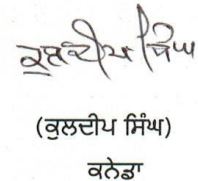 ਕੁਲਦੀਪ ਸਿੰਘ
(ਕੁਲਦੀਪ ਸਿੰਘ)
ਕਨੇਡਾ